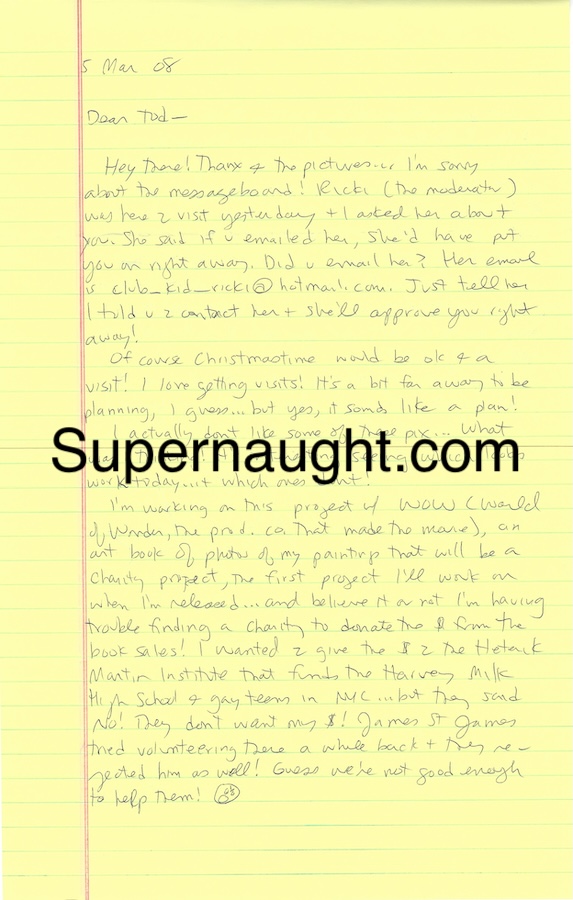 5 Mar 08
Dear Tod—
Hey there! Thanx 4 the pictures... I'm sorry
about the messageboard! Ricki (the moderator)
was here 2 visit yesterday + I asked her about
you. She said if u emailed her, she'd have put
you on right away. Did u email her? Her email
is club_kid_ricki@hotmail.com. Just tell her
I told u 2 contact her + she'll approve you right
away!
Of course Christmastime would be ok 4 a
visit! I love getting visits! It's a bit far away to be
planning, I guess... but yes, it sounds like a plan!
I actually don't like some of these pix... What
Supernaught.com
work today... which ones
I'm working on this project w/ WOW (World
of Wonder, the prod. co. that made the movie), an
art book of photos of my paintings that will be a
Charity project, the first project I'll work on
when I'm released... and believe it or not I'm having
trouble finding a Charity to donate the $ from the
book sales! I wanted 2 give the $ 2 the Hetrick
Martin Institute that funds the Harvey Milk
High School 4 gay teens in NYC... but they said
No! They don't want my $! James St James
tried volunteering there a while back + they re-
jected him as well! Guess we're not good enough
to help them!